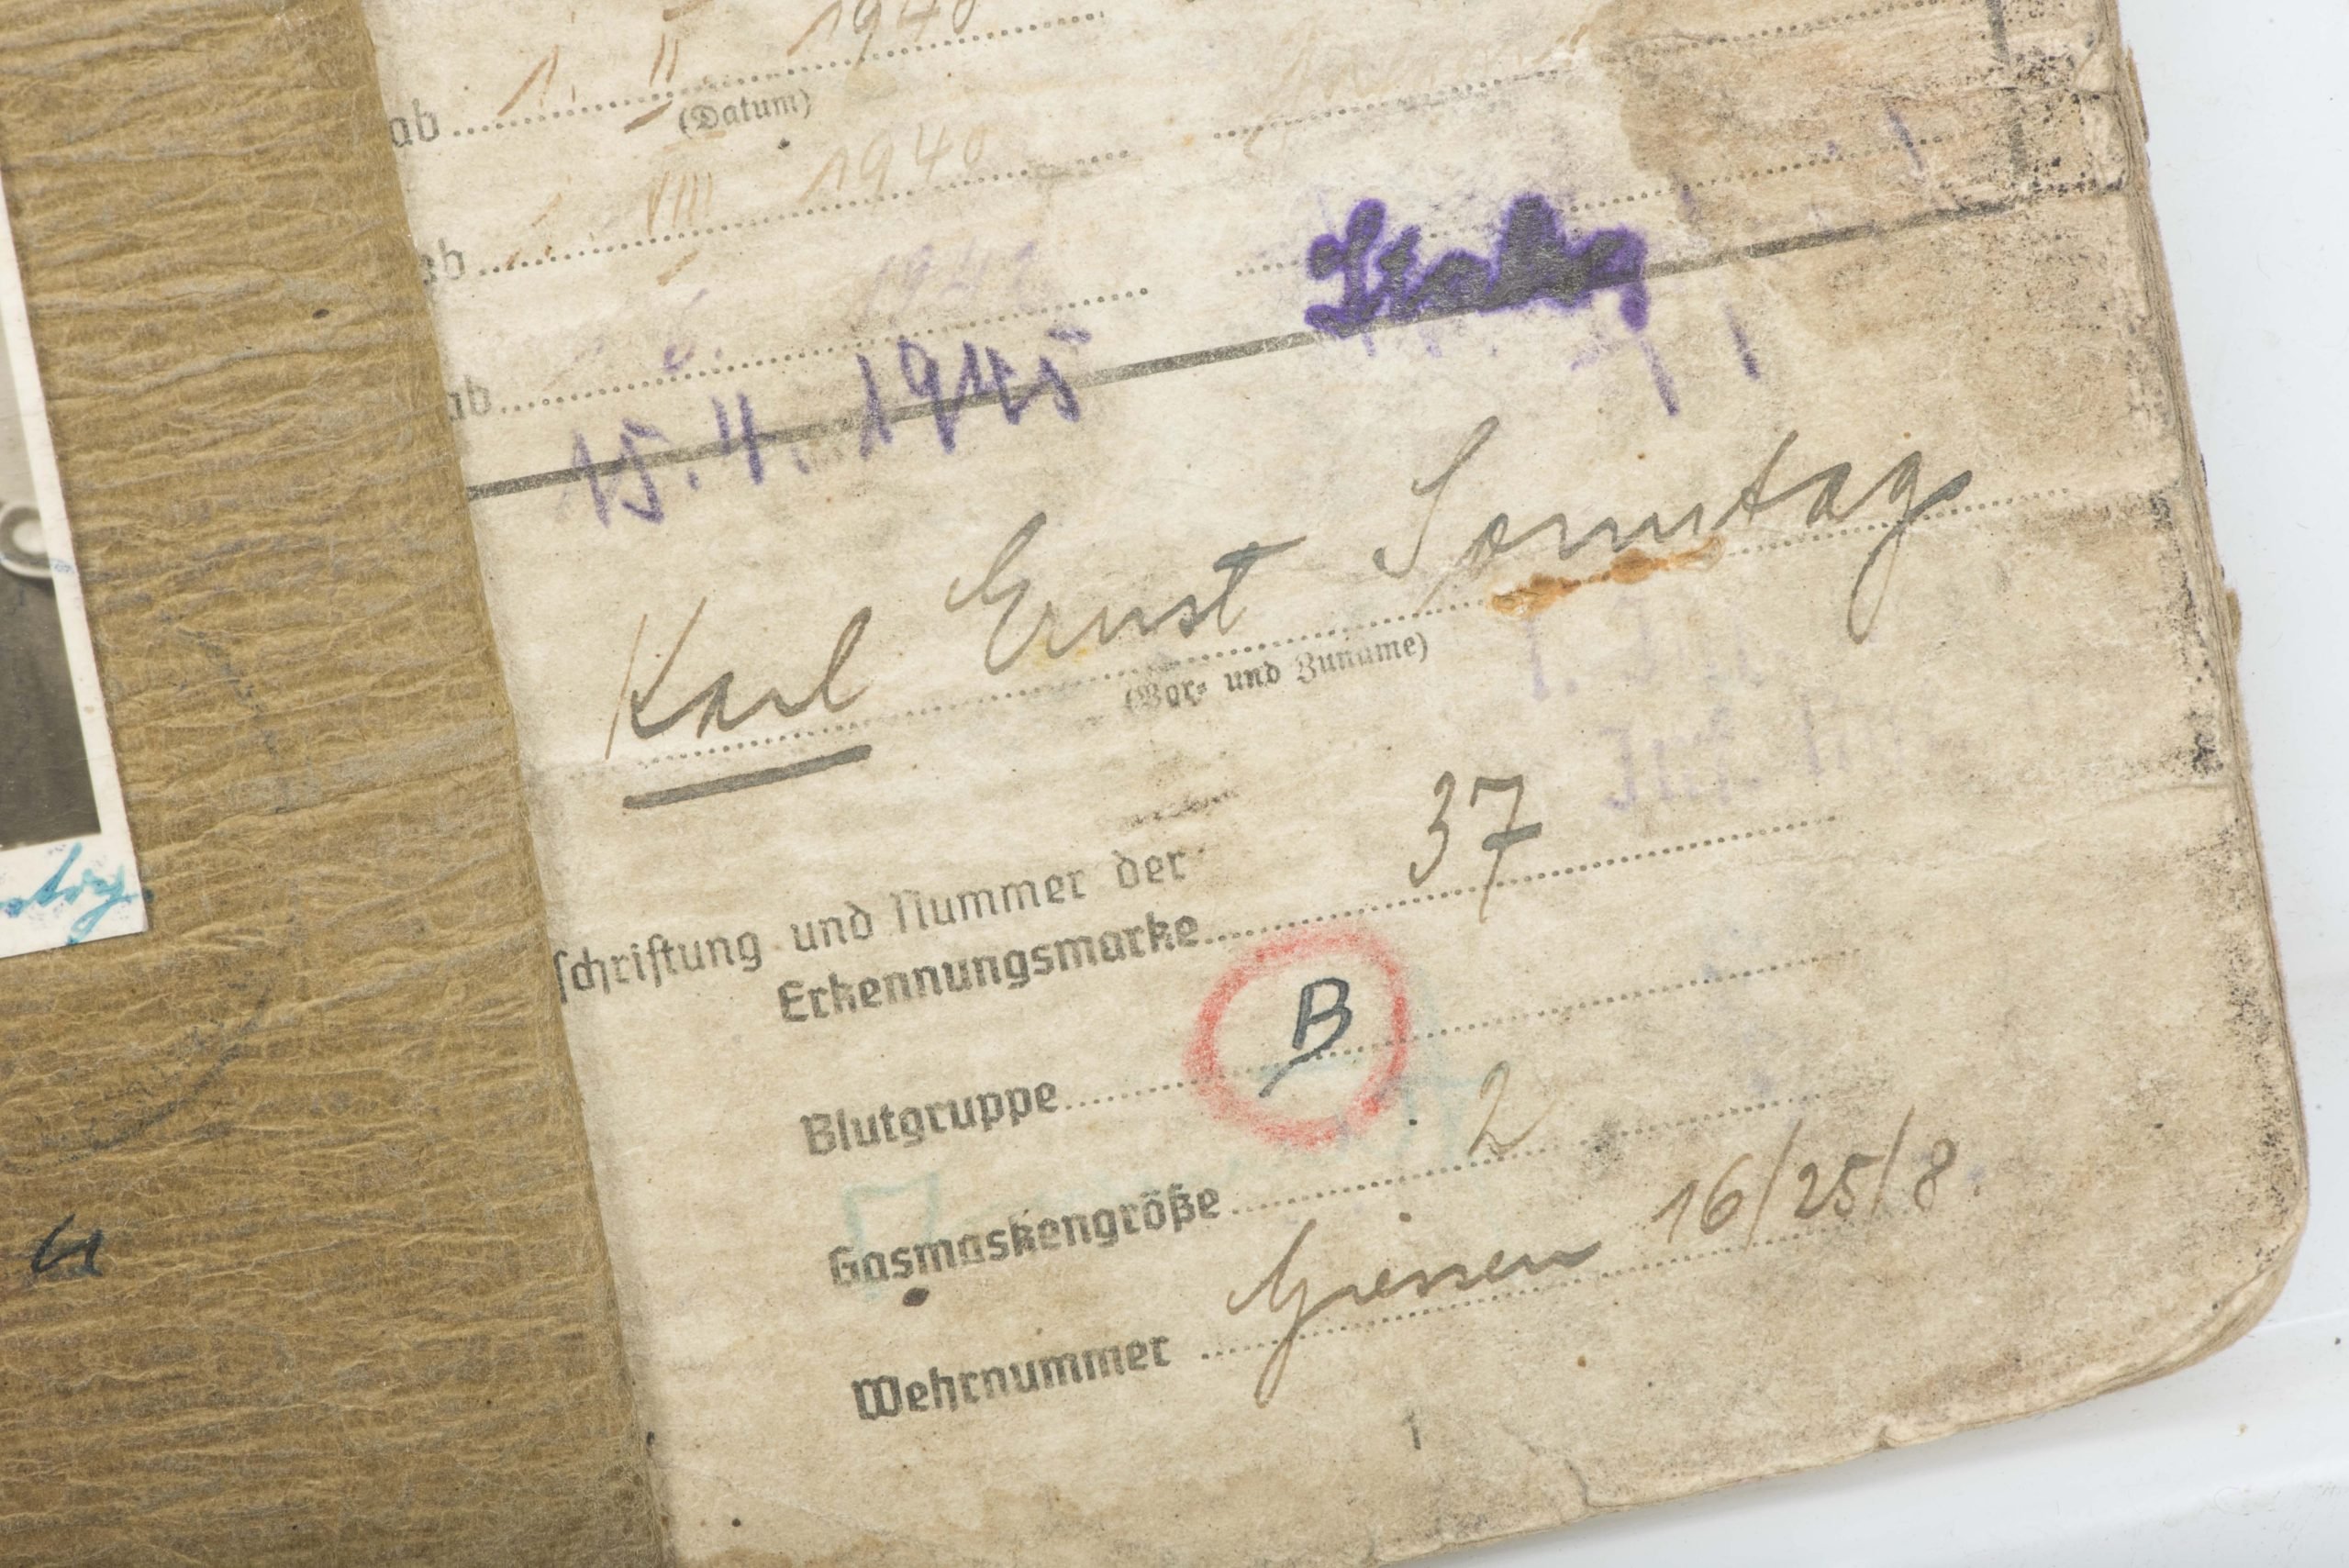 ab 1. II 1940
(Datum)
ab 1. VIII 1940
ab 6. 194
15. 4. 1945
Karl Ernst Sonntag
(Vor- und Zuname)
schriftung und Nummer der
Erkennungsmarke 37
Blutgruppe B
Gasmaskengröße 2
Wehrnummer Giessen 16/25/8.
1